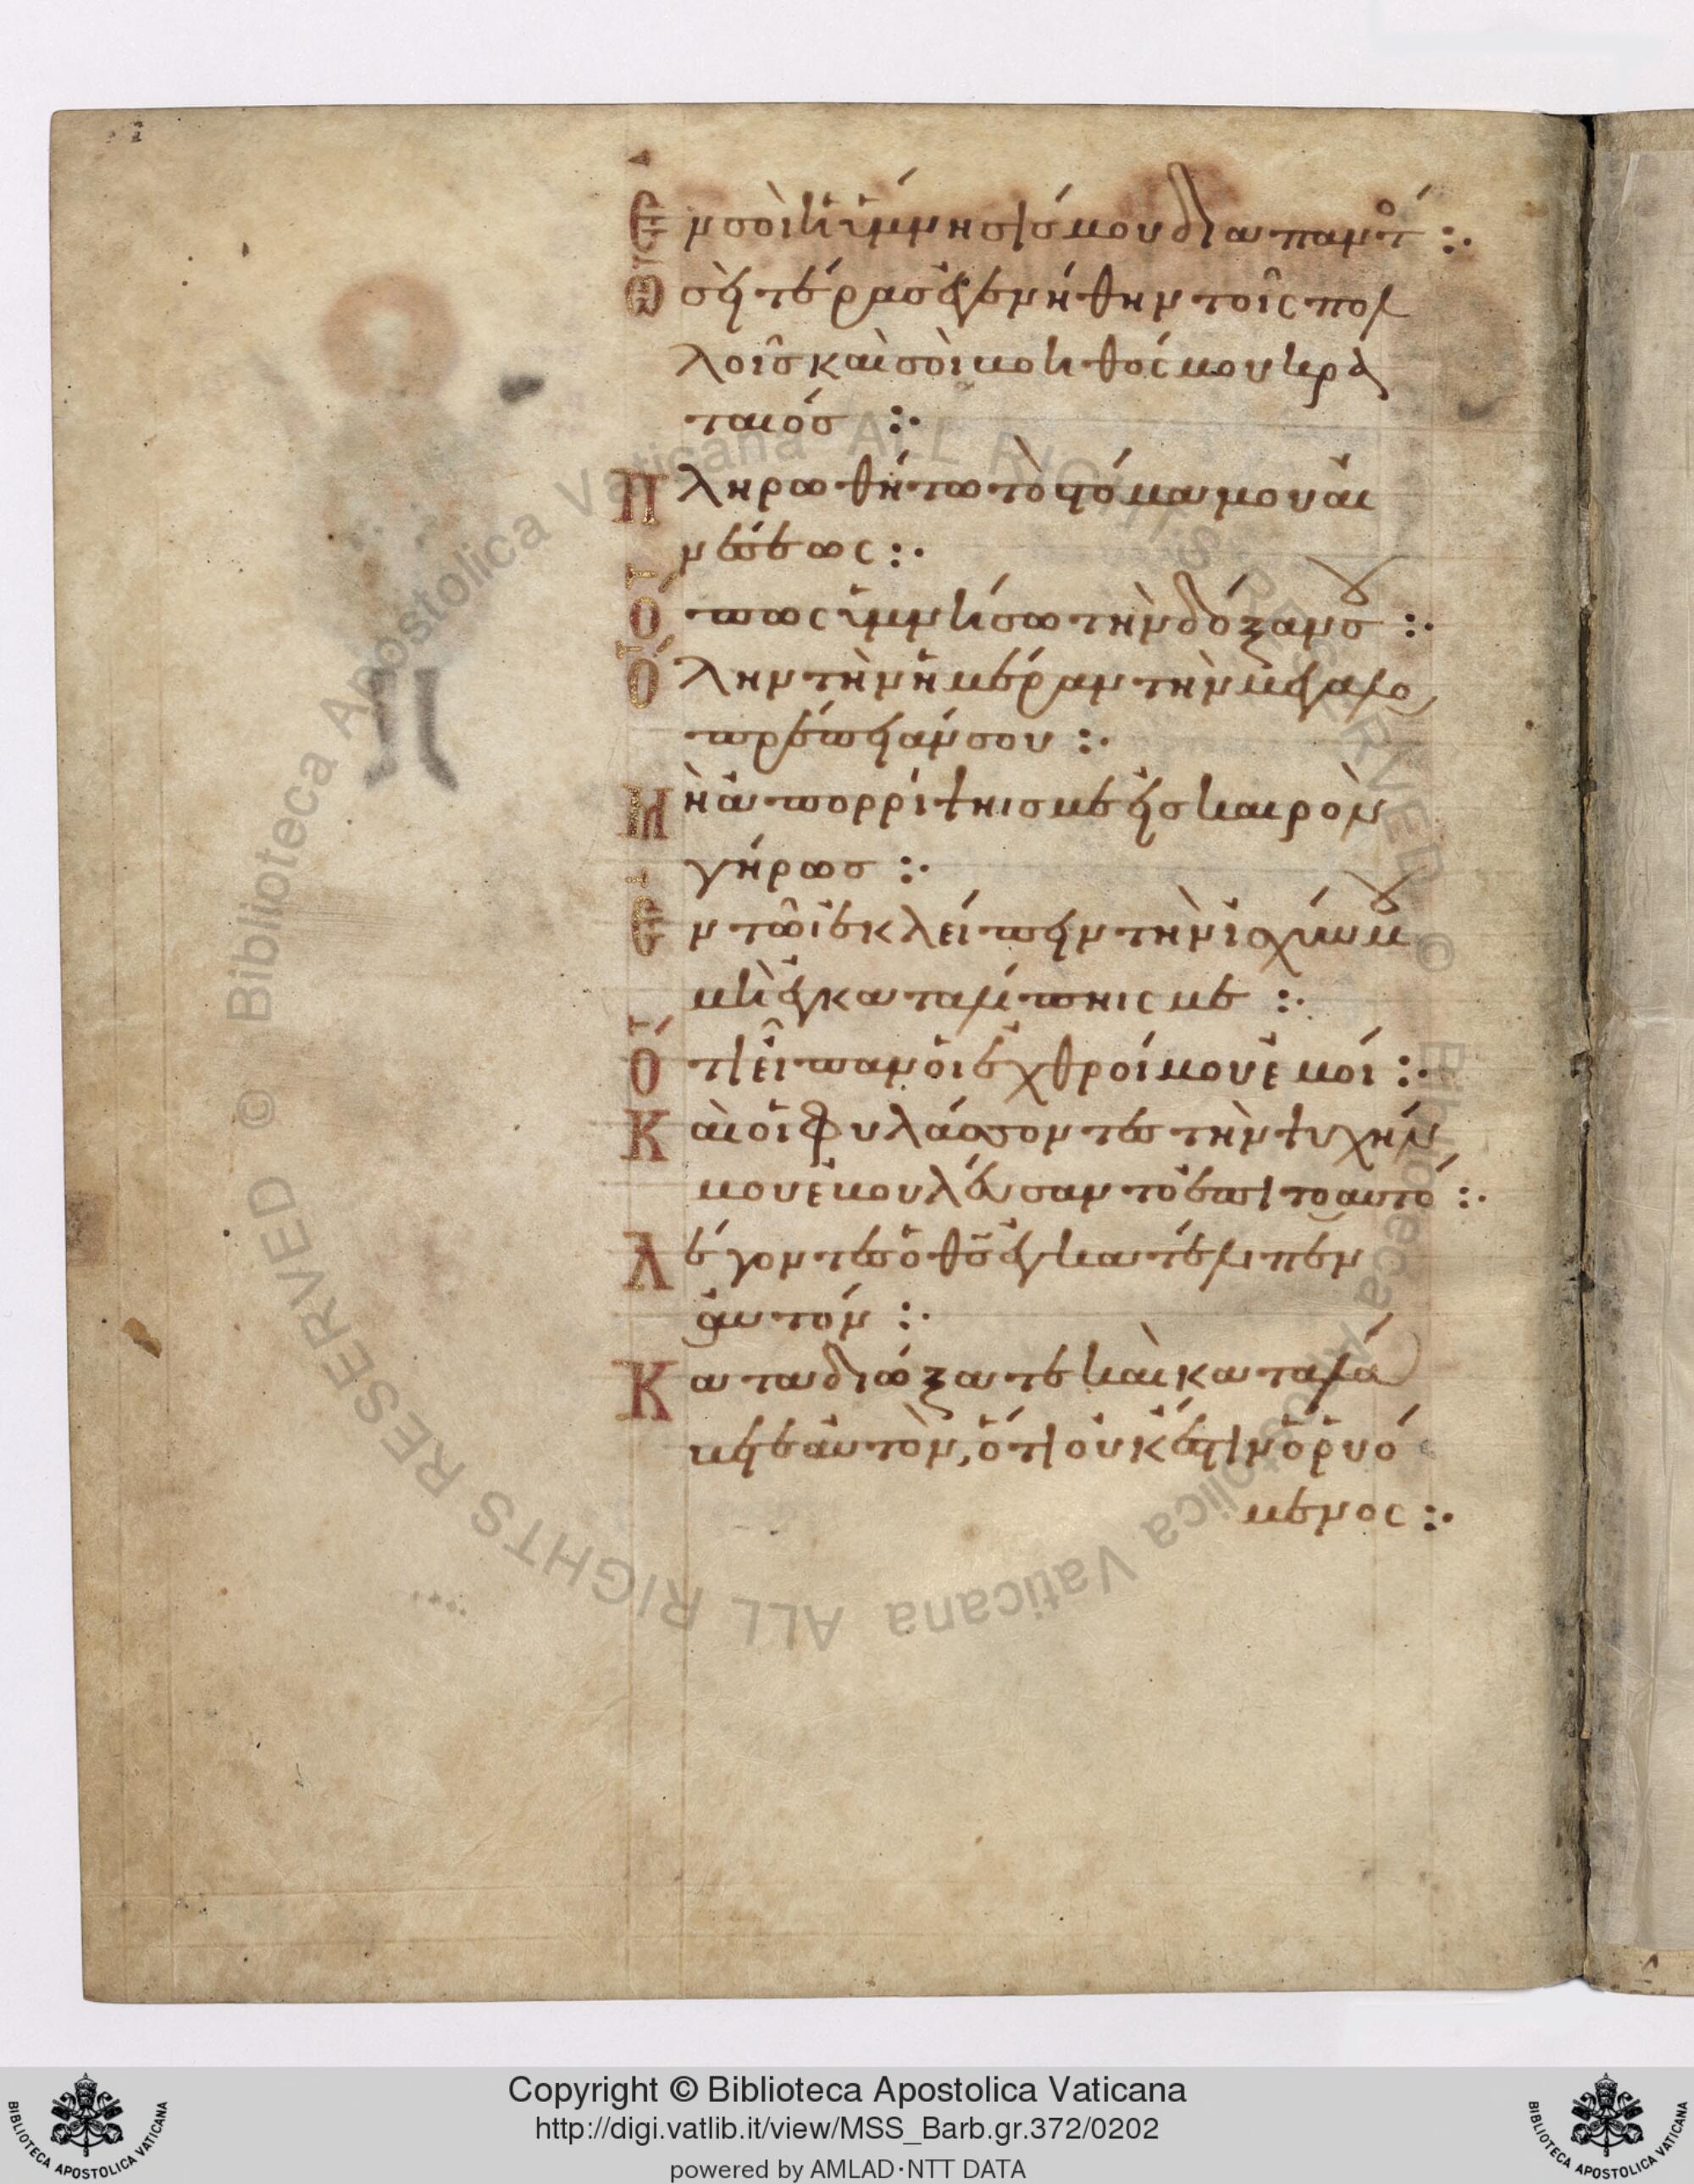 Ἐν σοὶ ἡ ὕμνησίς μου διαπαντ :·
Ὡσεὶ τέρας ἐγενήθην τοῖς πολ
λοῖς καὶ σὺ βοηθός μου κρα
ταιός :·
Πληρωθήτω τὸ στόμα μου αἰ
νέσεως :·
Ὅπως ὑμνήσω τὴν δόξαν σου :·
Ὅλην τὴν ἡμέραν τὴν μεγαλο
πρέπειάν σου :·
Μὴ ἀπορρίψῃς με εἰς καιρὸν
γήρως :·
Ἐν τῶ ἐκλείπειν τὴν ἰσχύν μου
μὴ ἐγκαταλίπῃς με :·
Ὅτι εἶπαν οἱ ἐχθροί μου ἐμοί :·
Καὶ οἱ φυλάσσοντες τὴν ψυχήν
μου ἐβουλεύσαντο ἐπιτοαυτό :·
Λέγοντες ὁ θς ἐγκατέλιπεν
αὐτόν :·
Καταδιώξατε καὶ καταλά
βετε αὐτὸν, ὅτι οὐκ ἔστιν ὁ ῥυό
μενος :·
Copyright © Biblioteca Apostolica Vaticana
http://digi.vatlib.it/view/MSS_Barb.gr.372/0202
powered by AMLAD·NTT DATA
BIBLIOTECA APOSTOLICA VATICANA
BIBLIOTECA APOSTOLICA VATICANA
© Biblioteca Apostolica Vaticana ALL RIGHTS RESERVED © Biblioteca Apostolica Vaticana ALL RIGHTS RESERVED